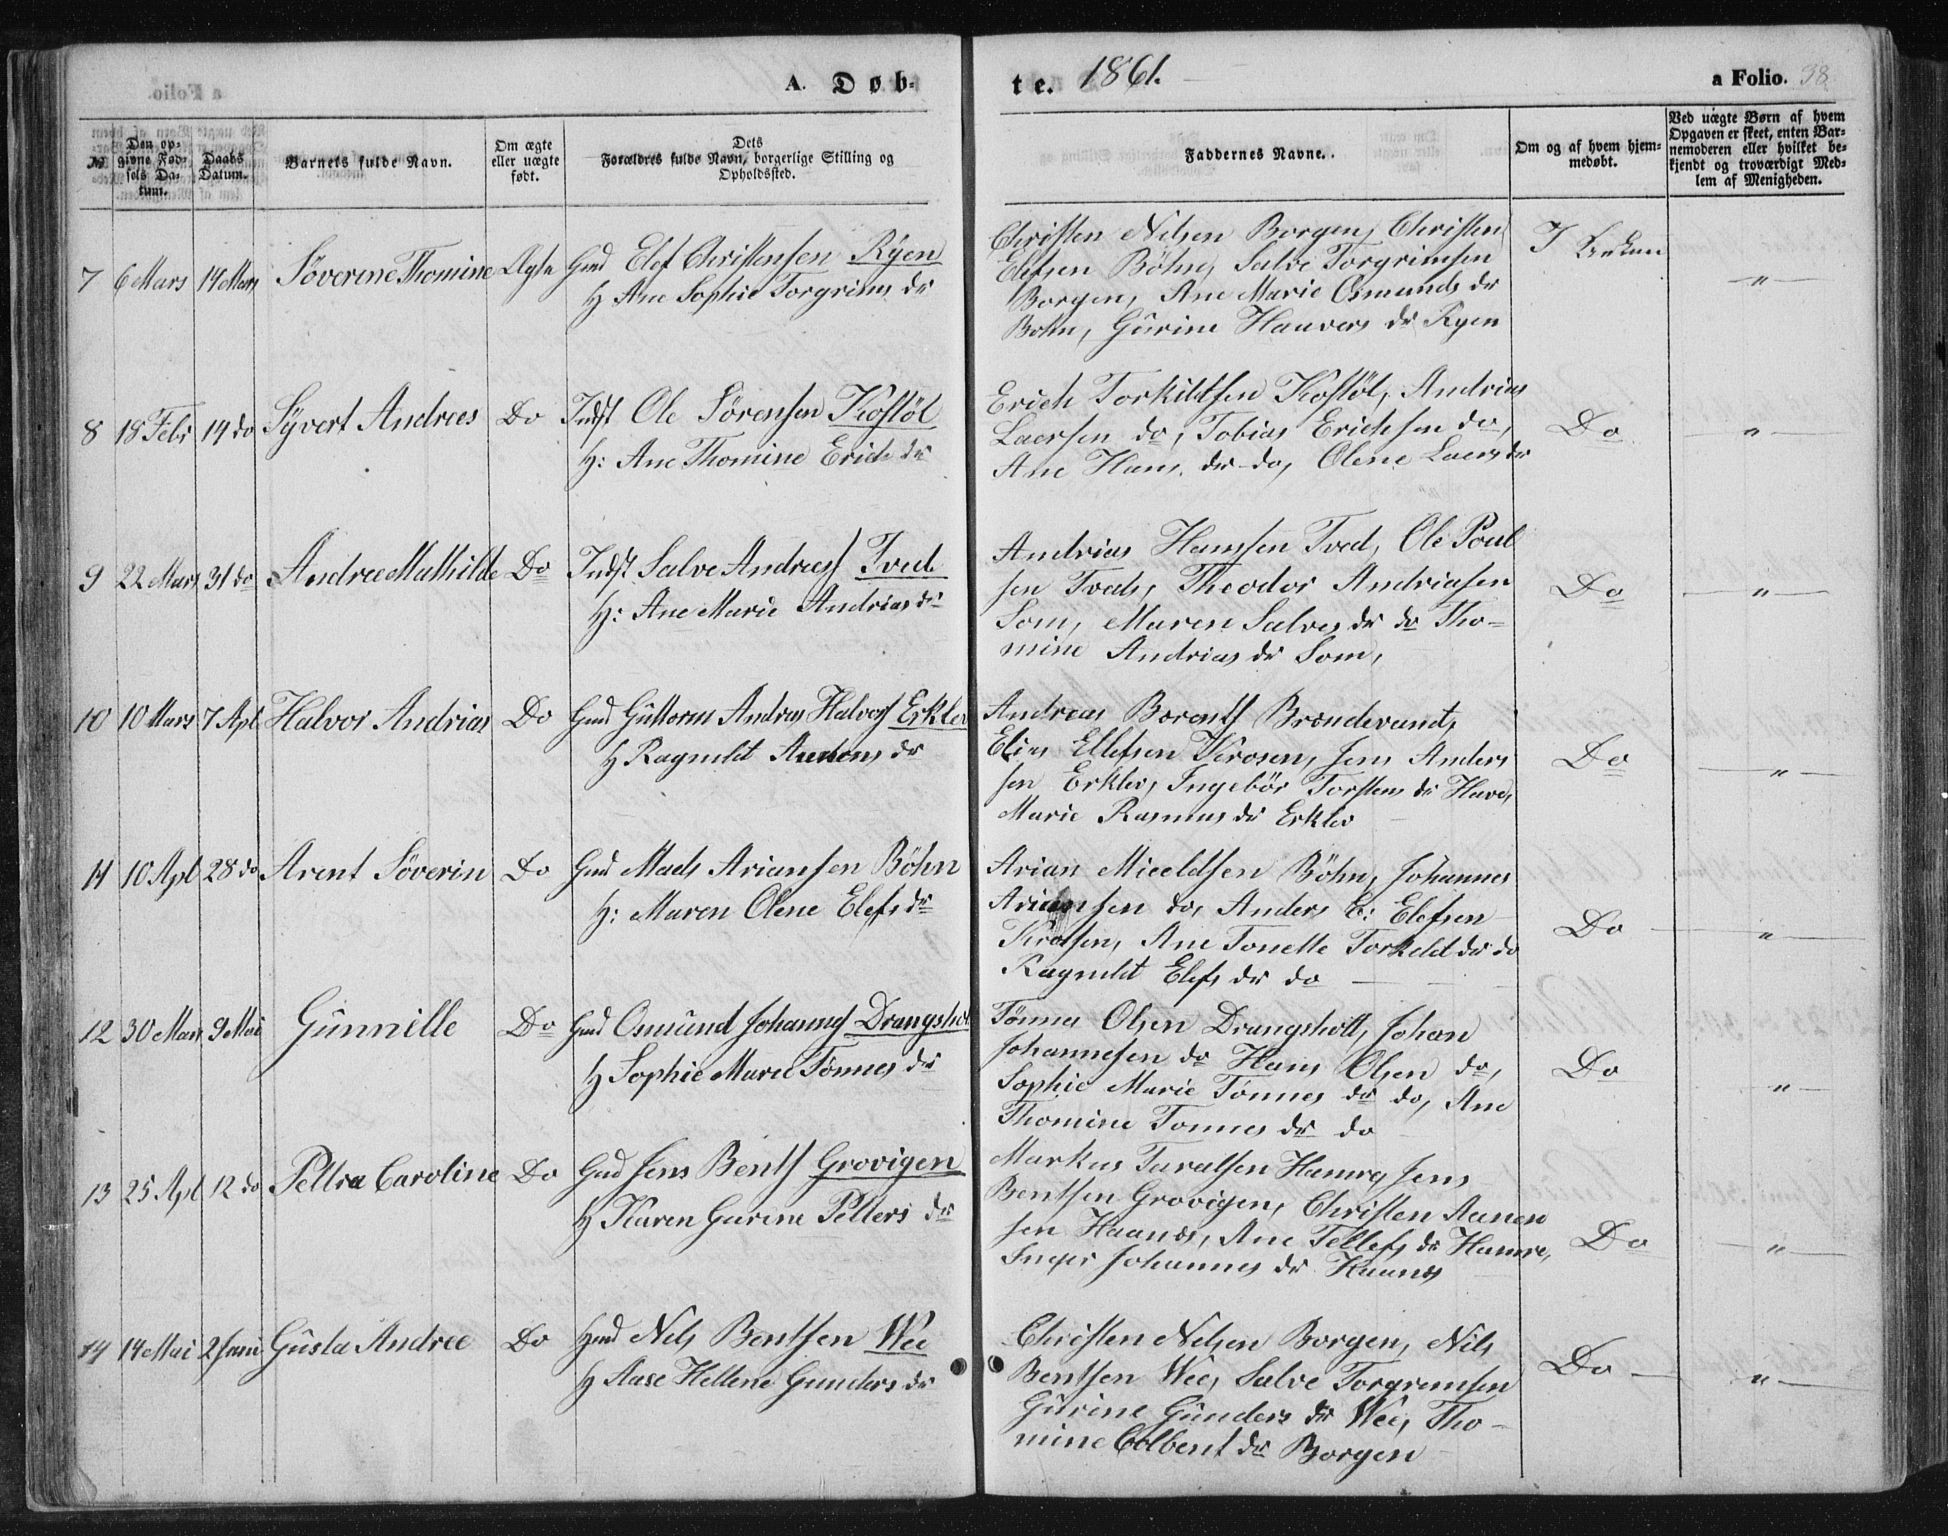 A. Døb-
te. 1861.
a Folio. 38.
№
Den op-
givne Fød-
sels Da-
tum.
Daabs
Datum.
Barnets fulde Navn.
Om ægte
eller uægte
født.
Dets
Forældres fulde Navn, borgerlige Stilling og
Opholdssted.
Faddernes Navne.
Om og af hvem hjem-
medøbt.
Ved uægte Børn af hvem
Opgaven er skeet, enten Bar-
nemoderen eller hvilket be-
kjendt og troværdigt Med-
lem af Menigheden.
7 6 Mars 14 Mars Söverine Thomine Ægte Gmd Elef Christensen Ryen
H Ane Sophie Torgrims dr
Christen Nilsen Borgen, Christen
Elefsen Böhn, Salve Torgrimsen
Borgen, Ane Marie Osmunds dr
Bohn, Gurine Hauvers dr Ryen
I Kirken
"
8 18 Febr 14 do Syvert Andreas Do Indst Ole Sörensen Kostöl
H: Ane Thomine Erichs dr
Erich Torkildsen Kostöl, Andrias
Laersen do, Tobias Erichsen do,
Ane Hans dr do, Olene Laers dr
Do "
9 22 Mars 31 do Andree Mathilde Do Indst Salve Andreas Tved
H: Ane Marie Andrias dr
Andrias Hansen Tved, Ole Poul
sen Tveds, Theodor Andriasen
Som, Maren Salves dr do Tho-
mine Andrias dr Som,
Do "
10 10 Mars 7 Apl Halvor Andrias Do Gmd Guttorm Andreas Halvors Erklev
H Ragnild Audens dr
Andreas Berents Brøndevand,
Elias Ellefsen Krosen, Jens Anders
sen Erklev, Ingebör Torstens dr Have,
Marie Rasmus dr Erklev
Do "
11 10 Apl 28 do Arent Söverin Do Gmd Mads Ariansen Böhn
H: Maren Olene Elefs dr
Arian Mieldsen Böhn, Johannes
Ariansen do, Anders C: Elefsen
Krossen, Ane Tonette Torkeld dr do
Ragnild Elefs dr do
Do "
12 30 Mars 9 Mai Gunnille Do Gmd Osmund Johannes Drangsholt
H Sophie Marie Tønnes dr
Tönnes Olsen Drangsholt, Johan
Johannesen do Hans Olsen do,
Sophie Marie Tønnes dr do, Ane
Thomine Tonnes dr do
Do "
13 25 Apl 12 do Pettra Caroline Do Gmd Jens Bents Grovigen
H Karen Gurine Petters dr
Markus Taralsen Hamre, Jens
Bentsen Grovigen, Christen Aanen
sen Haanes, Ane Tellefs dr Hamre,
Inger Johannes dr Haanes
Do "
14 14 Mai 2 Juni Gusta Andree Do Gmd Nils Bentsen Wee
H Aase Hellene Gunders dr
Christen Nilsen Borgen, Nils
Bentsen Wee, Salve Torgrimsen
Gurine Gunders dr Wee, Tho-
mine Colbent dr Borgen
Do "